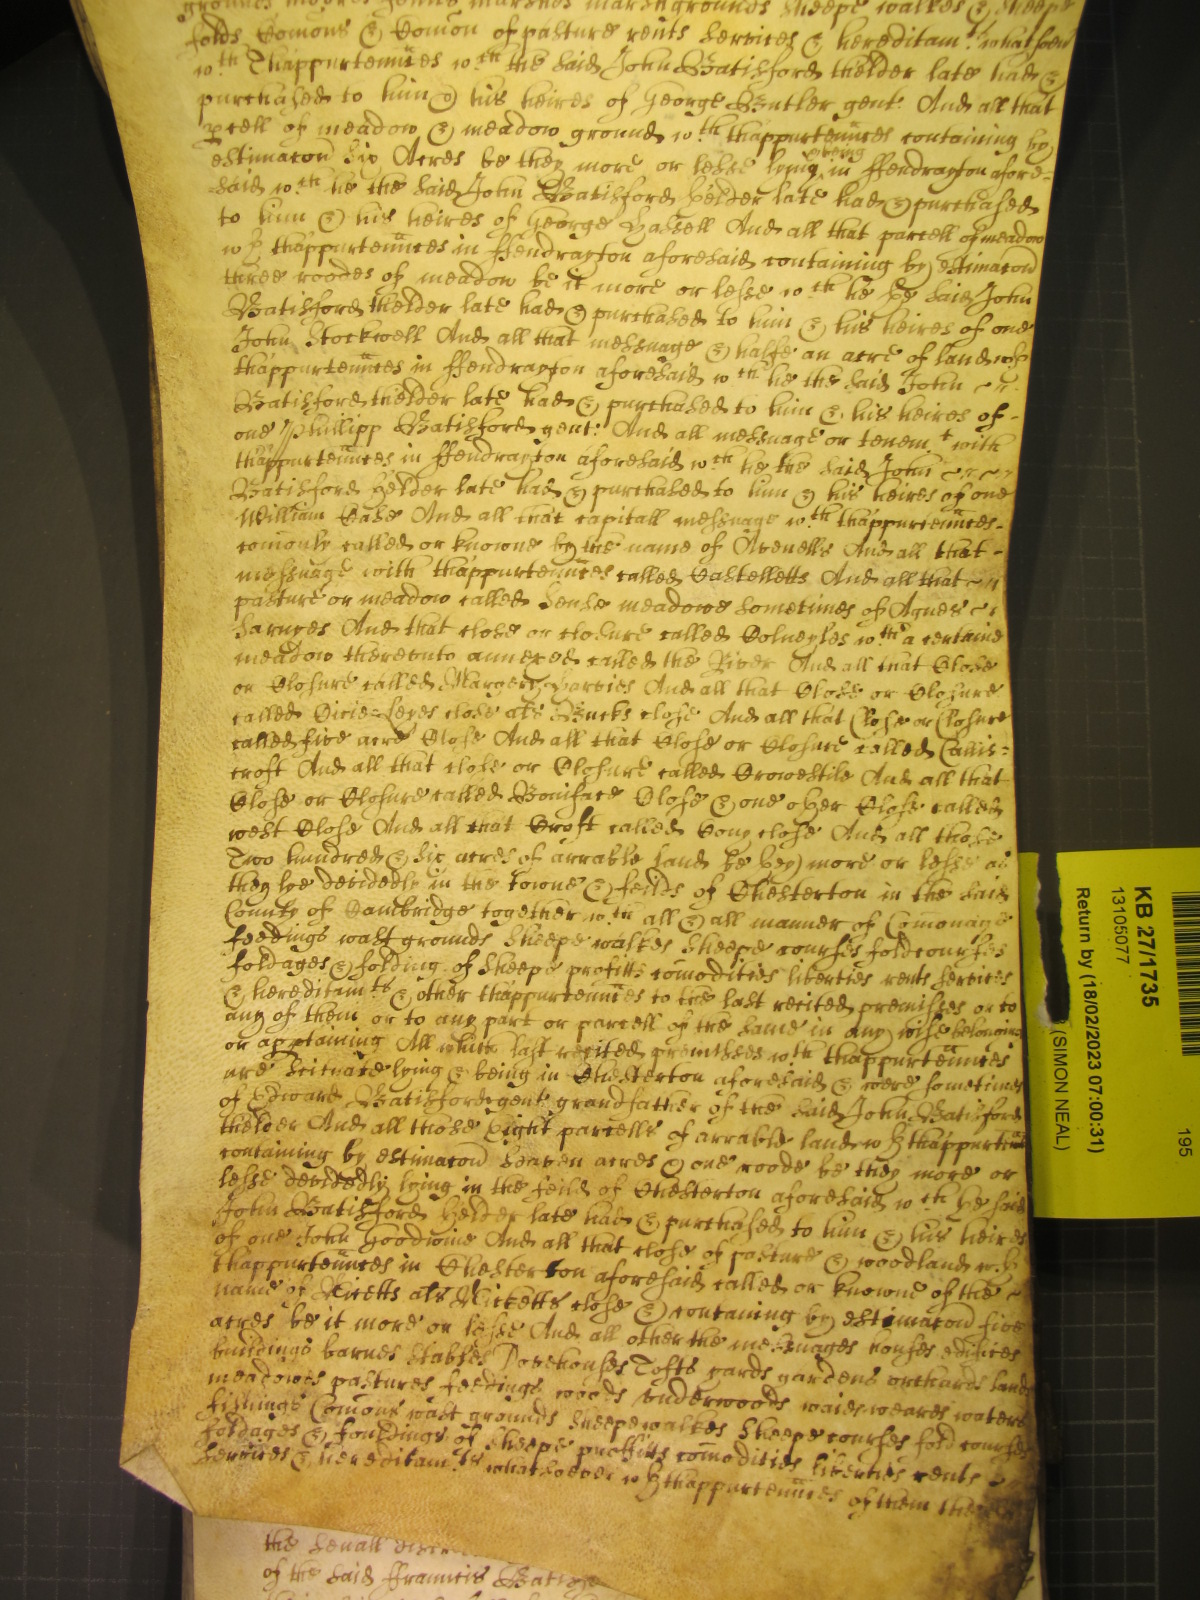 grounds moores fenns marshes marshgrounds sheepe walkes & sheepe
folds Comons & Comon of pasture rents services & hereditamts whatsoev
wth Thappurtenñces wth the said John Batisford thelder late had &
purchased to him & his heires of George Butler gent: And all that
pcell of meadow & meadow ground wth thappurtenñces containing by
estimacon six Acres be they more or lesse lying & being in ffendrayton afore-
said wth he the said John Batisford thelder late had & purchased
to him & his heires of George Hassell And all that parcell of meadow
wth thappurtenñces in ffendrayton aforesaid containing by estimacon
three roodes of meadow be it more or lesse wth he ye said John
Batisford thelder late had & purchased to him & his heires of one
John Stockwell And all that messuage & halfe an acre of land wth
thappurtenñces in ffendrayton aforesaid wth he the said John
Batisford thelder late had & purchased to him & his heires of-
one Phillipp Batisford gent: And all messuage or tenemt with
thappurtenñces in ffendrayton aforesaid wth he the said John
Batisford yelder late had & purchased to him & his heires of one
William Case And all that capitall messuage wth thappurtenñces-
comonly called or knowne by the name of Avenells And all that-
messuage with thappurtenñces called Castelletts And all that
pasture or meadow called Sense meadowe sometimes of Agnes
Sarnyes And that close or closure called Colneyles wth a certaine
meadow thereunto annexed called the River And all that Close
or Closure called Margery Harvies And all that Close or Closure
called Cicie-leyes close als Bucks close And all that Close or Closure
called five acre Close And all that Close or Closure called Callis-
croft And all that close or Closure called Crowestile And all that
Close or Closure called Boniface Close & one other Close called
west Close And all that Croft called Cony close And all those
Two hundred & six acres of arrable land be they more or lesse as
they lye devidedly in the towne & feilds of Chesterton in the said
County of Cambridge together wth all & all manner of Comonage
feedings wast grounds sheepe walkes sheepe courses foldcourses
foldages & folding of sheepe profitts comodities liberties rents services
& hereditamts & other thappurtenñces to the last recited premises or to
any of them or to any part or parcell of the same in any wise belonging
or apptaining All which last recited premisses wth thappurtenñces
are scituate lying & being in Chesterton aforesaid & were sometimes
of Edward Batisford gent grandfather of the said John Batisford
thelder And all those Eight parcells of arrable land wth thappurtenñces
containing by estimacon Seaven acres & one roode be they more or
lesse devidedly lying in the feild of Chesterton aforesaid wth he said
John Batisford yelder late had & purchased to him & his heires
of one John Goodwine And all that close of pasture & woodland wth
thappurtenñces in Chesterton aforesaid called or knowne of the
name of Miretts als Micketts close & contaning by estimacon five
acres be it more or lesse And all other the messuages houses edifices
buildings barnes stables Dovehouses Tofts yards gardens orchards lands
meadowes pastures feedings woods underwoods waies weares waters
fishings Comons wast grounds sheepewalkes sheepe courses fold courses
foldages & fouldings of sheepe proffitts comodities liberties rents
services & hereditamts whatsoever wth thappurtenñces of them
the sevall
of the said ffrancis
KB 27/1735
13105077
Return by (18/02/2023 07:00:31)
(SIMON NEAL)
195